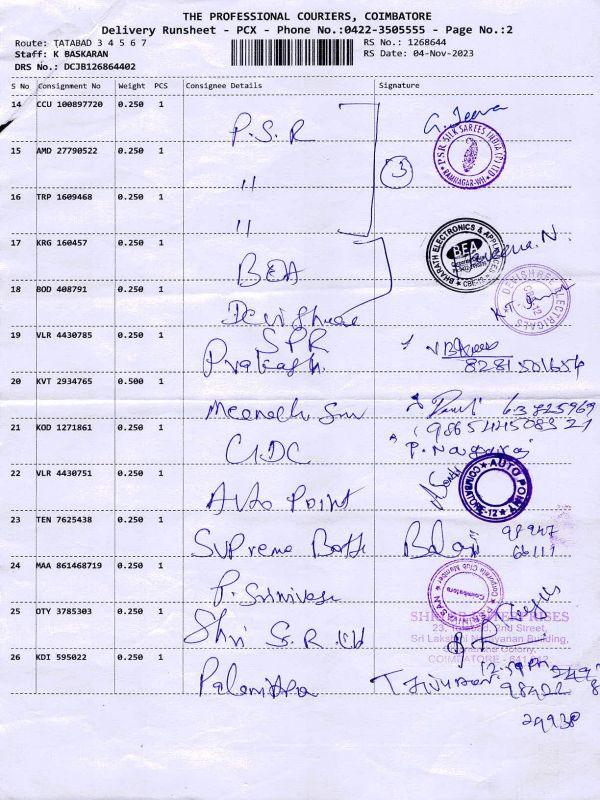 THE PROFESSIONAL COURIERS, COIMBATORE
Delivery Runsheet - PCX - Phone No.:0422-3505555 - Page No.:2
Route: TATABAD 3 4 5 6 7
RS No.: 1268644
Staff: K BASKARAN
RS Date: 04-Nov-2023
DRS No.: DCJB126864402
S No Consignment No Weight PCS Consignee Details Signature
14 CCU 100897720 0.250 1 P.S.R G. Jeeva
PSR SILK SAREES INDIA (P) LTD
RAMNAGAR-WH
15 AMD 27790522 0.250 1 " 3
16 TRP 1609468 0.250 1 "
17 KRG 160457 0.250 1 BEA
BHARATH ELECTRONICS & APPLIANCES
BEA
CBE-12
18 BOD 408791 0.250 1 Devishree
DEVISHREE ELECTRICALS
19 VLR 4430785 0.250 1 SPR
Prakash. 8281501654
20 KVT 2934765 0.500 1
21 KOD 1271861 0.250 1 CIDC P. Nagaraj
22 VLR 4430751 0.250 1 Auto Point
AUTO POINT
COIMBATORE-12
23 TEN 7625438 0.250 1 Supreme Both Balaji 98947
66111
24 MAA 861468719 0.250 1 P. Srinivasa
P.SRINIVASAN
Corporate Club Member
Coimbatore
25 OTY 3785303 0.250 1 Shri G.R Ltd
ENTERPRISES
2nd Street,
Sri Lakshmi Narayanan Building,
Colony,
COIMBATORE
26 KDI 595022 0.250 1
98422
24938